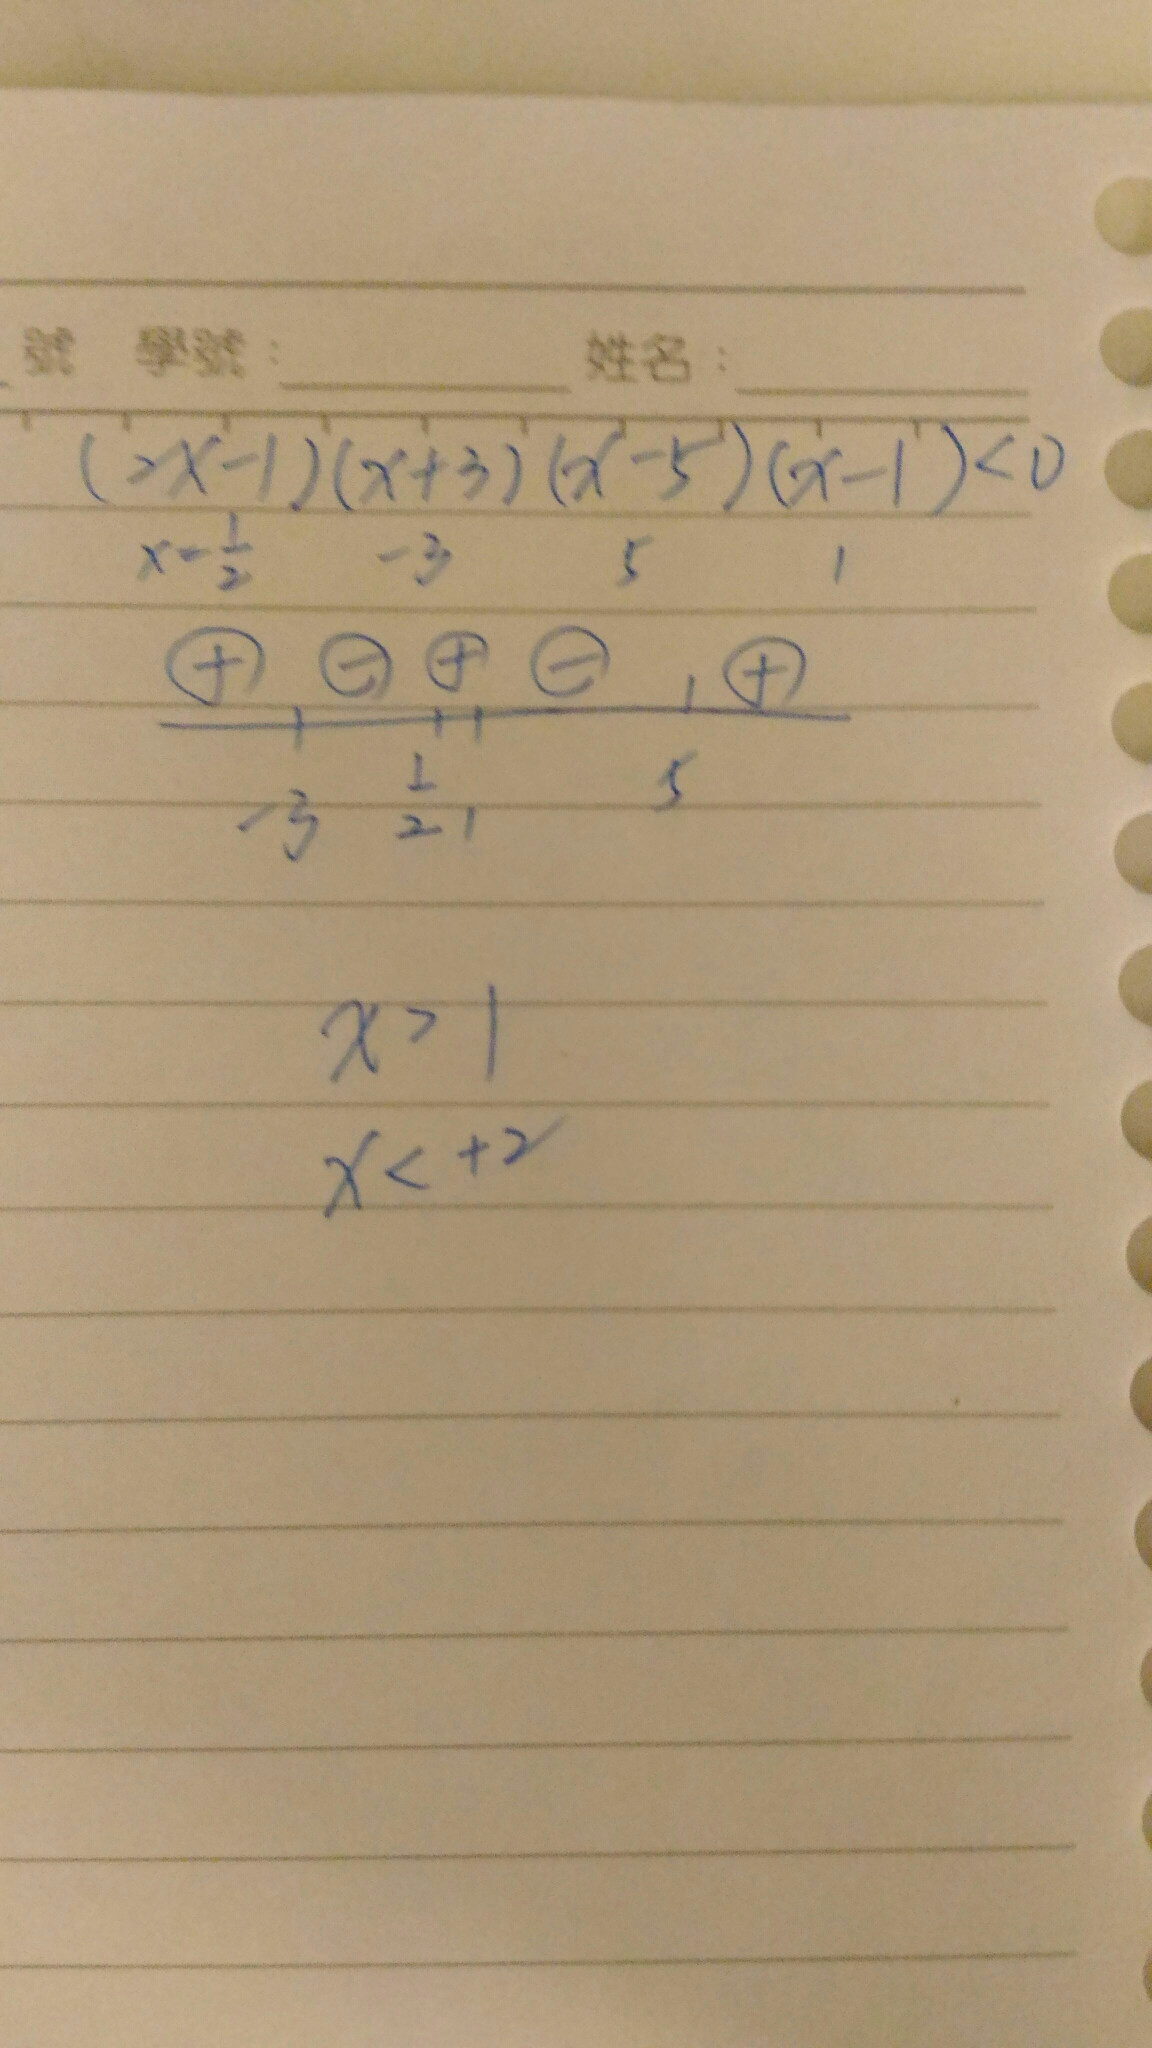 號 學號： 姓名：
(2x-1)(x+3)(x-5)(x-1)<0
x=1/2 -3 5 1
⊕ ⊖ ⊕ ⊖ ⊕
-3 1/2 1 5
x>1
x<+2